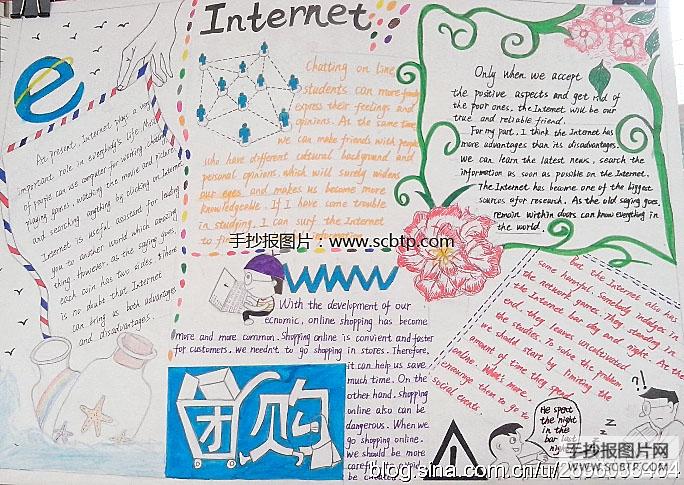 Internet
At present, Internet plays a very
important role in everybody's life. Most
of people can use computer for working, chatting,
playing games, watching the movie and pictures,
and searching anything by clicking on Internet.
Internet is useful assistance for leading
you to another world which amazing
thing. However, as the saying goes,
each coin has two sides, there
is no doubt that Internet
can bring us both advantages
and disadvantages.
Chatting on line
students can more freely
express their feelings and
opinions. As the same time,
we can make friend with people
who have different cultural background and
personal opinions, which will surely widens
our eyes and makes us become more
knowledgeable. If I have some trouble
in studying, I can surf the Internet
to find information
手抄报图片：www.scbtp.com
Only when we accept
the positive aspects and get rid of
the poor ones, the Internet will be our
true and reliable friend.
For my part, I think the Internet has
more advantages than its disadvantages.
We can learn the latest news, search the
information as soon as possible on the Internet.
The Internet has become one of the biggest
sources ofor research. As the old saying goes,
remain within doors can know everything in
the world.
www
With the development of our
ecnomic, online shopping has become
more and more common. Shopping online is convient and faster
for customers, we needn't to go shopping in stores. Therefore,
it can help us save
much time. On the
other hand, shopping
online also can be
dangerous. When we
go shopping online,
we should be more
careful to void
be cheated.
团购
But the Internet also has
some harmful. Somebody indulges in
the network games. They standing in
the Internet bar day and night. At the
end, they leaves uncultivated
the studies. To solve the problem,
we should start by limiting the
amount of time they spend
online. What's more,
encourage them to go to
social events.
He spent
the night
in the
bar last
night
?!
z
z
手抄报图片网
WWW.SCBTP.COM